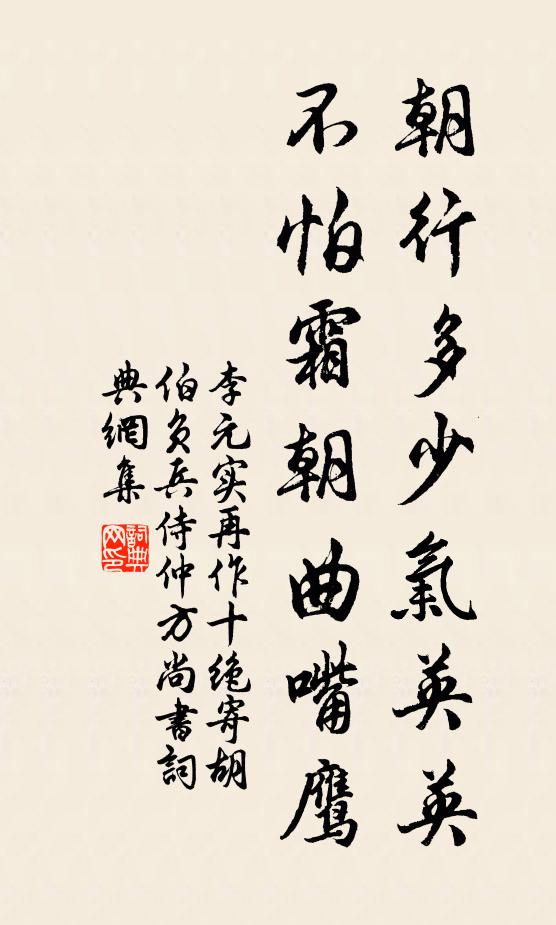 朝行多少氣英英
不怕霜朝曲嘴鹰
李元实再作十绝寄胡
伯负兵侍仲方尚書詞
典網集
詞典網印